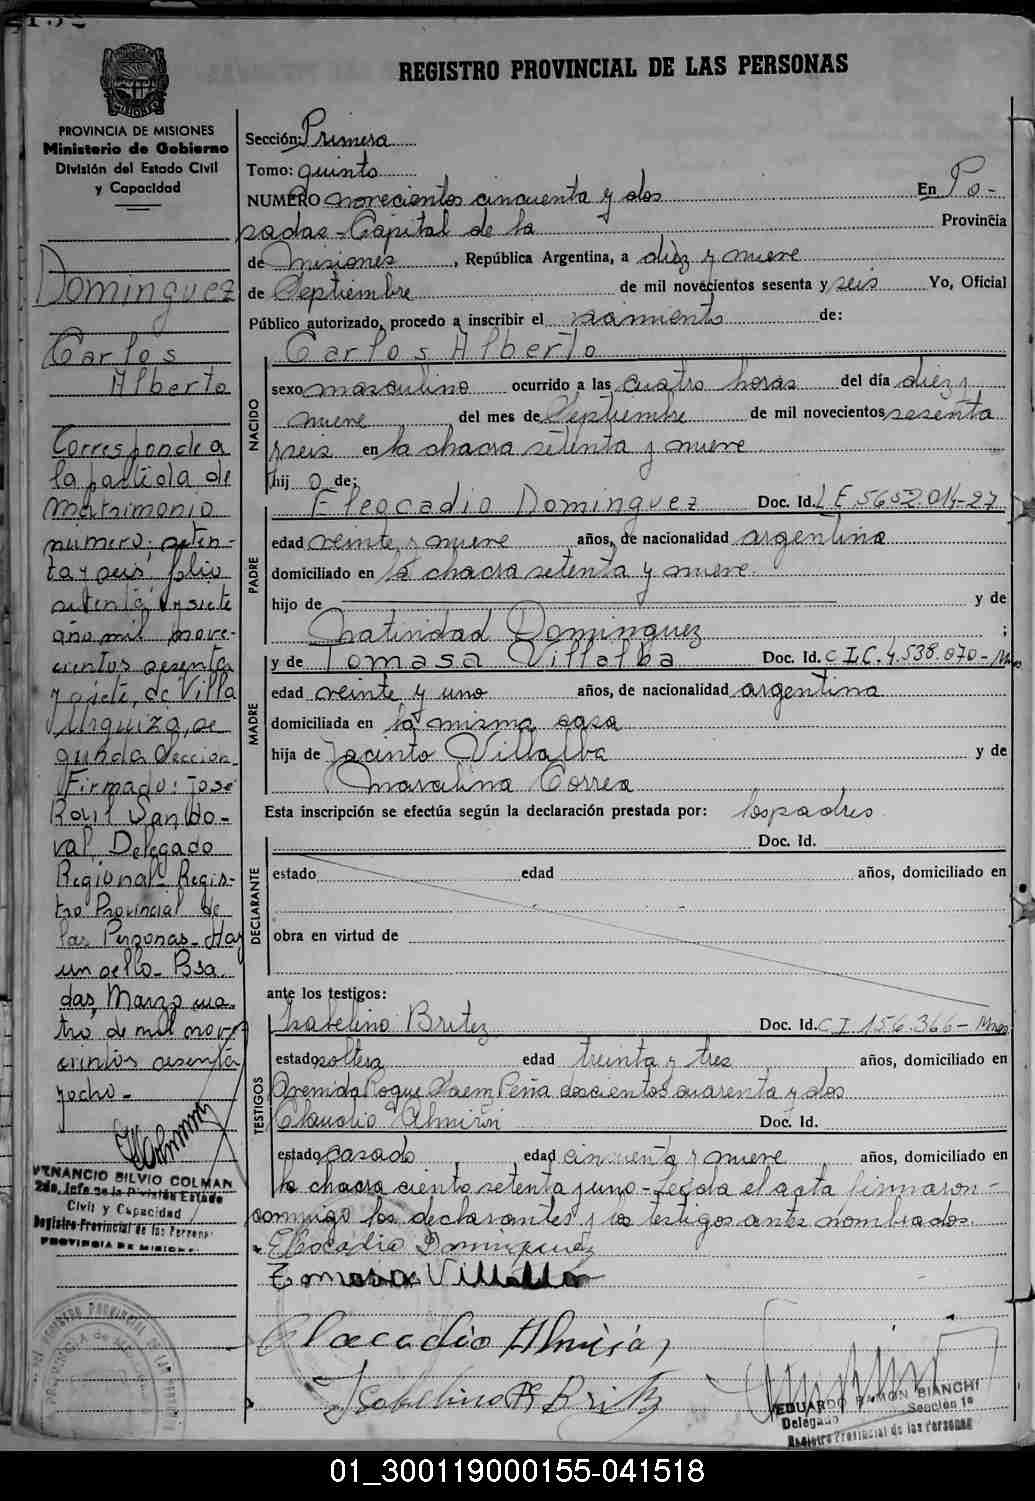 REGISTRO PROVINCIAL DE LAS PERSONAS
PROVINCIA DE MISIONES
Ministerio de Gobierno
División del Estado Civil
y Capacidad
Dominguez
Carlos
Alberto
Corresponde a
la partida de
Matrimonio
número; seten-
ta y seis, folio
setenta y siete
año mil nove-
cientos sesenta
y siete, de Villa
Urquiza, se
gunda Seccion
Firmado: José
Raúl Sando-
val, Delegado
Regional- Regis-
tro Provincial de
las Personas- Hay
un sello- Posa
das, Marzo cua-
tro de mil nove
cientos sesenta
y ocho-
VENANCIO SILVIO COLMAN
2do. Jefe de la División Estado
Civil y Capacidad
Registro Provincial de las Personas
PROVINCIA DE MISIONES
Sección: Primera
Tomo: quinto
NUMERO novecientos cincuenta y dos En Po-
sadas-Capital de la Provincia
de Misiones, República Argentina, a diez y nueve
de Septiembre de mil novecientos sesenta y seis Yo, Oficial
Público autorizado, procedo a inscribir el nacimiento de:
Carlos Alberto
NACIDO
sexo masculino ocurrido a las cuatro horas del día diez y
nueve del mes de Septiembre de mil novecientos sesenta
y seis en la chacra setenta y nueve
hij o de:
Eleocadio Dominguez Doc. Id. L E 5652.014-27
PADRE
edad veinte y nueve años, de nacionalidad argentina
domiciliado en la chacra setenta y nueve
hijo de y de
Natividad Dominguez ;
y de Tomasa Villalba Doc. Id. C I.C. 4.538.070-Mnes
MADRE
edad veinte y uno años, de nacionalidad argentina
domiciliada en la misma casa
hija de Jacinto Villalba y de
Marcelina Correa
Esta inscripción se efectúa según la declaración prestada por: los padres
Doc. Id.
DECLARANTE
estado edad años, domiciliado en
obra en virtud de
ante los testigos:
Isabelino Britez Doc. Id. C I. 156.366-Mnes
TESTIGOS
estado soltero edad treinta y tres años, domiciliado en
Avenida Roque Saenz Peña doscientos cuarenta y dos
Claudio Almirón Doc. Id.
estado casado edad cincuenta y nueve años, domiciliado en
la chacra ciento setenta y uno-Leída el acta firmaron
conmigo los declarantes y los testigos antes nombrados.
Eleocadio Dominguez
Tomasa Villalba
Isabelino Britz
EDUARDO RAMON BIANCHI
Delegado Sección 1a
Registro Provincial de las Personas
01_300119000155-041518